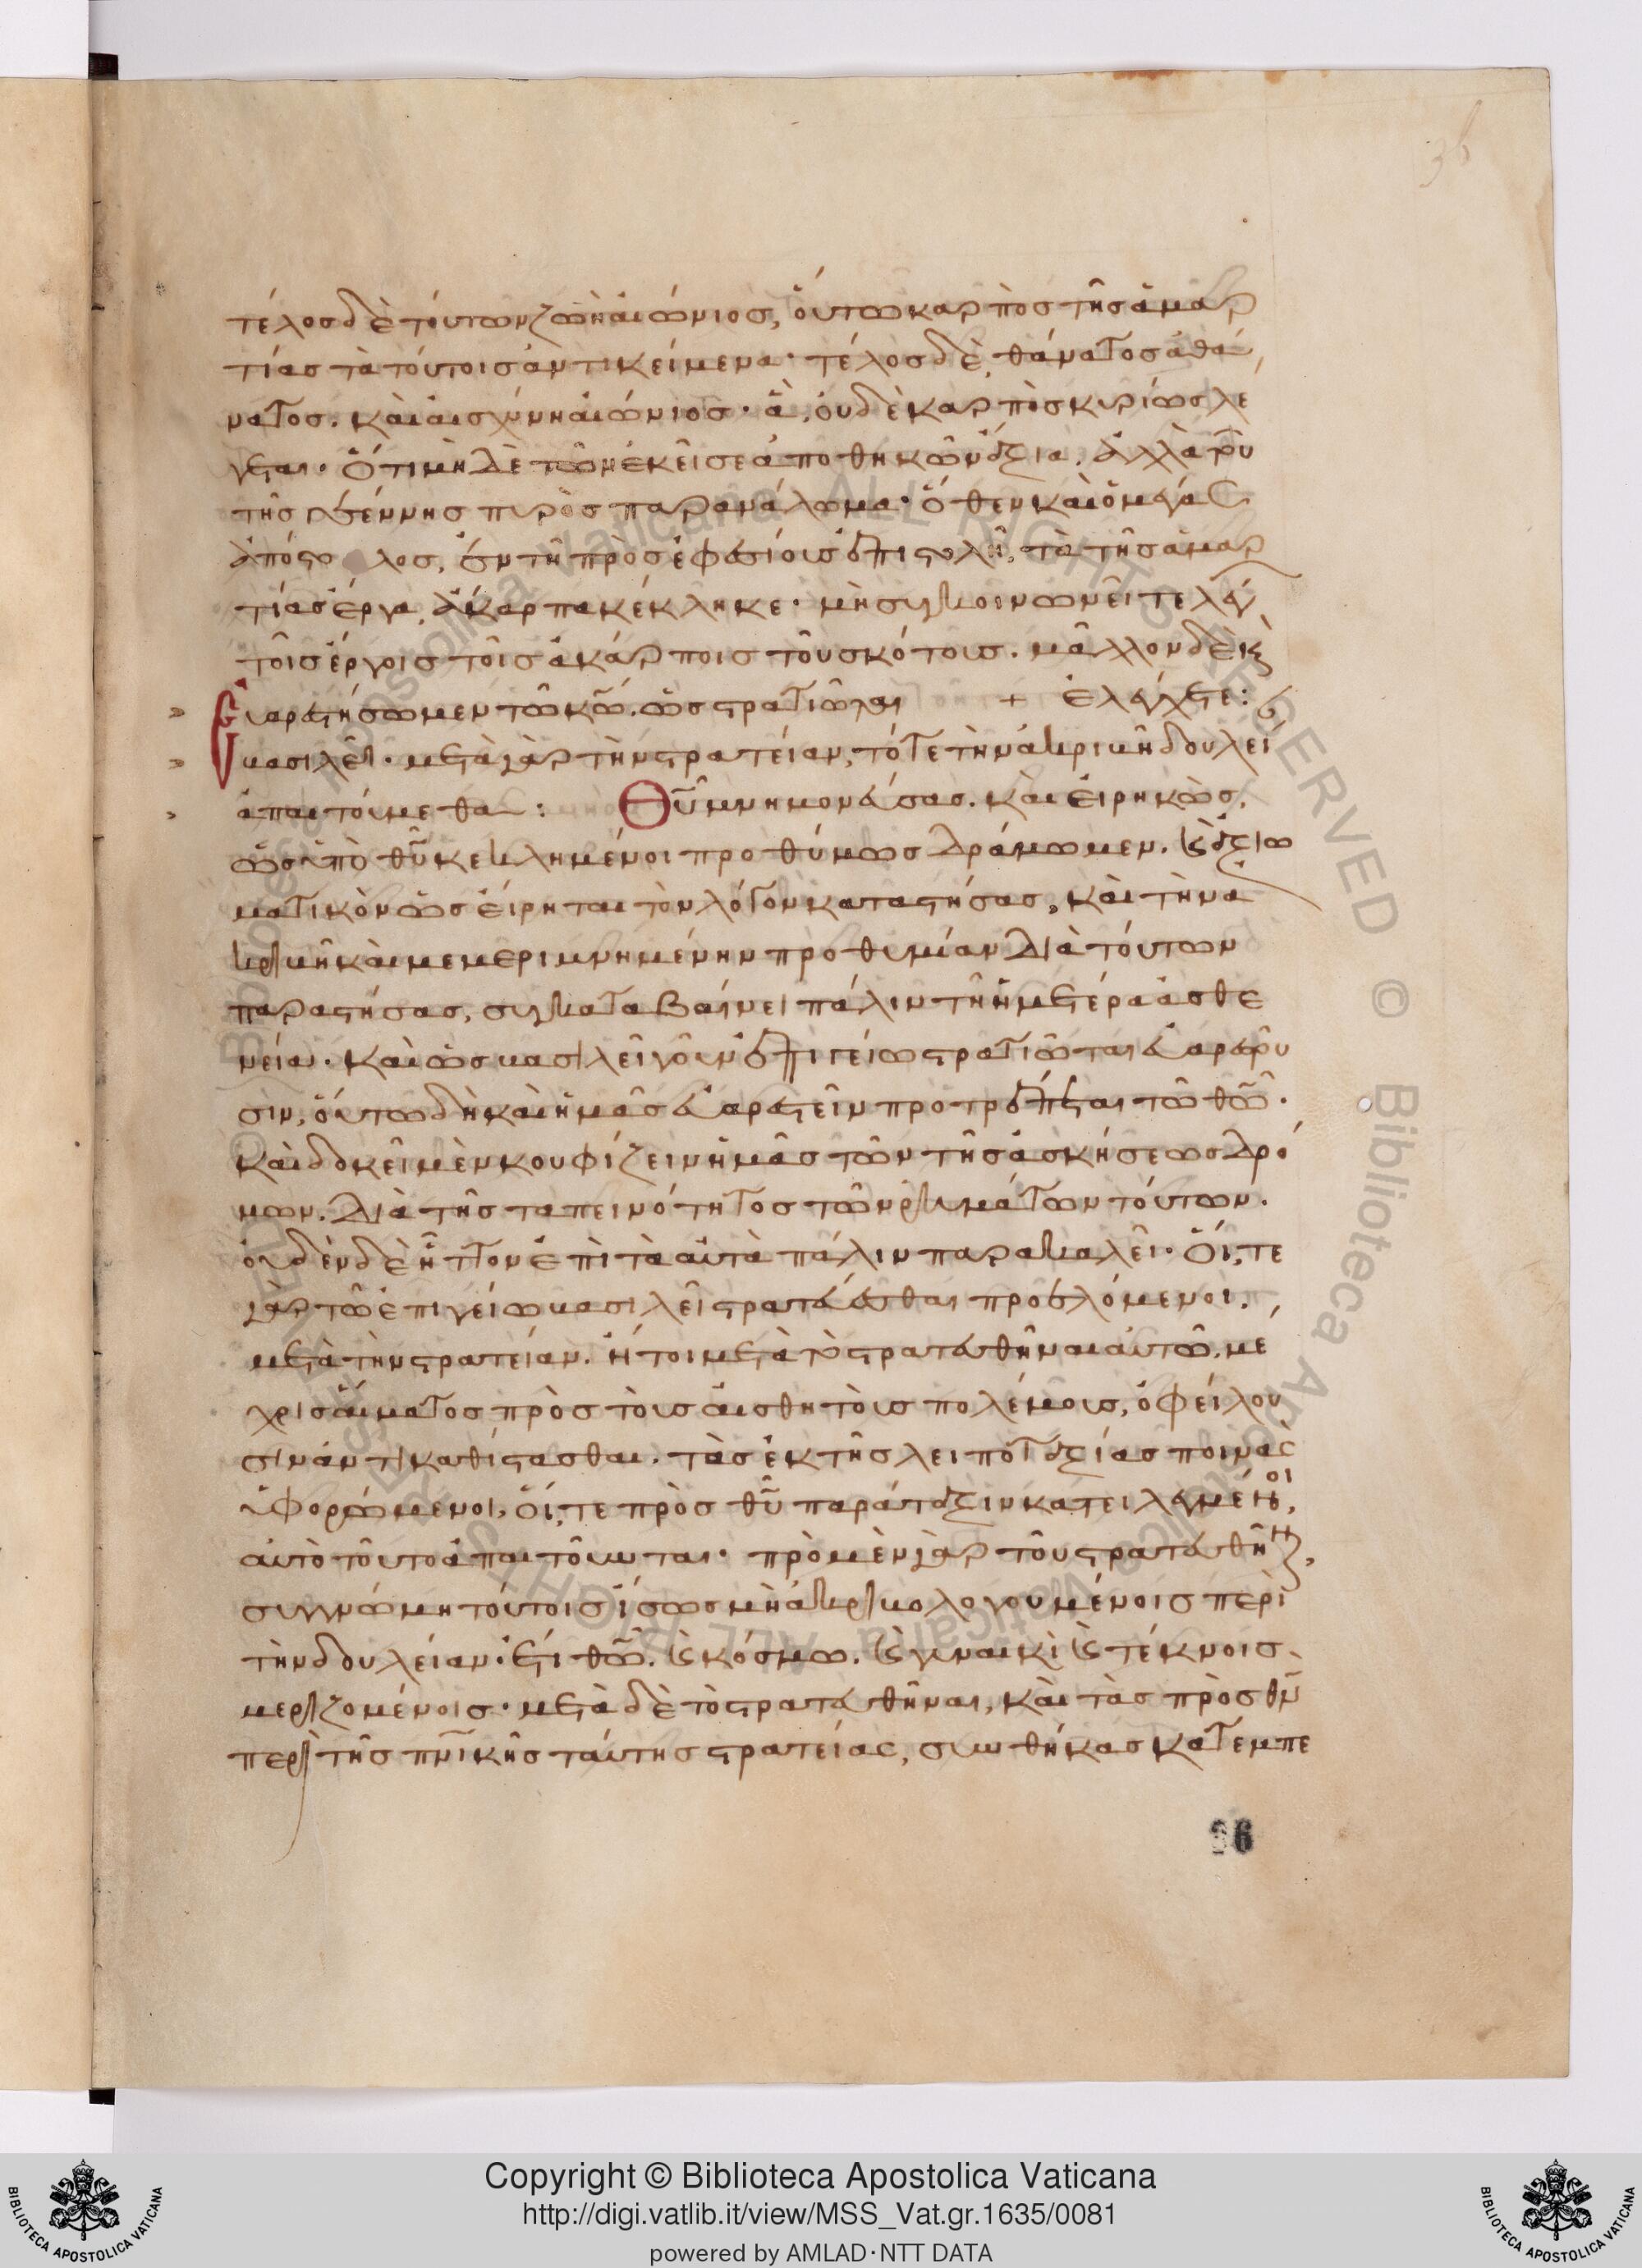 36
τέλος δὲ τούτων ζωὴ αἰώνιος, οὕτω καρπὸς τῆς ἁμαρ
τίας τὰ τούτοις ἀντικείμενα· τέλος δὲ, θάνατος ἀθά
νατος. καὶ αἰσχύνη αἰώνιος· ἃ, οὐδὲ καρπὸς κυρίως λέ
γεται· ὅτι μὴ δὲ τῶν ἐκεῖσε ἀποθηκῶν ἄξια. ἀλλὰ τοῦ
τῆς γεέννης πυρὸς παρανάλωμα· ὅθεν καὶ ὁ μέγας
ἀπόστολος, ἐν τῇ πρὸς ἐφεσίους ἐπιστολῇ, τὰ τῆς ἁμαρ
τίας ἔργα, ἄκαρπα κέκληκε· μὴ συγκοινωνεῖτε λέγ
τοῖς ἔργοις τοῖς ἀκάρποις τοῦ σκότους. μᾶλλον δὲ κ
Εὐαρεστήσωμεν τῶ κω. ὡς στρατιῶται + ἐλέγχετε:
βασιλεῖ· μετὰ γὰρ τὴν στρατείαν, τότε τὴν ἀκριβῆ δουλεί
ἀπαιτούμεθα: Θῦ μνημονεύσας. καὶ εἰρηκὼς,
ὡς ὑπὸ θῦ κεκλημένοι προθύμως δράμωμεν. κ ἀξιω
ματικὸν ὡς εἴρηται τὸν λόγον καταστήσας, καὶ τὴν ἀ
κριβῆ καὶ μεμεριμνημένην προθυμίαν διὰ τούτων
παραστήσας, συγκαταβαίνει πάλιν τῇ ἡμετέρα ἀσθε
νεία· καὶ ὡς βασιλεῖ γοῦν ἐπιγείω στρατιῶται εὐαρεστοῦ
σιν, οὕτω δὴ καὶ ἡμᾶς εὐαρεστεῖν προτρέπεται τῶ θω·
καὶ δοκεῖ μὲν κουφίζειν ἡμᾶς τῶν τῆς ἀσκήσεως δρό
μων. διὰ τῆς ταπεινότητος τῶν ῥημάτων τούτων.
οὐδὲν δὲ ἧττον ἐπὶ τὰ αὐτὰ πάλιν παρακαλεῖ· οἵ, τε
γὰρ τῶ ἐπιγείω βασιλεῖ στρατεύεσθαι προελόμενοι,
μετὰ τὴν στρατείαν. ἤτοι μετὰ τὸ στρατευθῆναι αὐτῶ. μέ
χρις αἵματος πρὸς τοὺς αἰσθητοὺς πολέμους, ὀφείλου
σιν ἀντικαθίστασθαι. τὰς ἐκ τῆς λειποταξίας ποινὰς
ὑφορώμενοι, οἵ, τε πρὸς θῦ παράταξιν κατειλεγμένοι,
αὐτὸ τοῦτο ἀπαιτοῦνται· πρὸ μὲν γὰρ τοῦ στρατευθῆναι,
συγγνώμη τούτοις ἴσως μὴ ἀκριβολογουμένοις περὶ
τὴν δουλείαν· ἔτι θω. κ κόσμω. κ γυναικὶ κ τέκνοις
μεριζομένοις· μετὰ δὲ τὸ στρατευθῆναι, καὶ τὰς πρὸς θν
περὶ τῆς πνικῆς ταύτης στρατείας, συνθήκας κατεμπε
36
Copyright © Biblioteca Apostolica Vaticana
http://digi.vatlib.it/view/MSS_Vat.gr.1635/0081
powered by AMLAD·NTT DATA
BIBLIOTECA APOSTOLICA VATICANA
BIBLIOTECA APOSTOLICA VATICANA